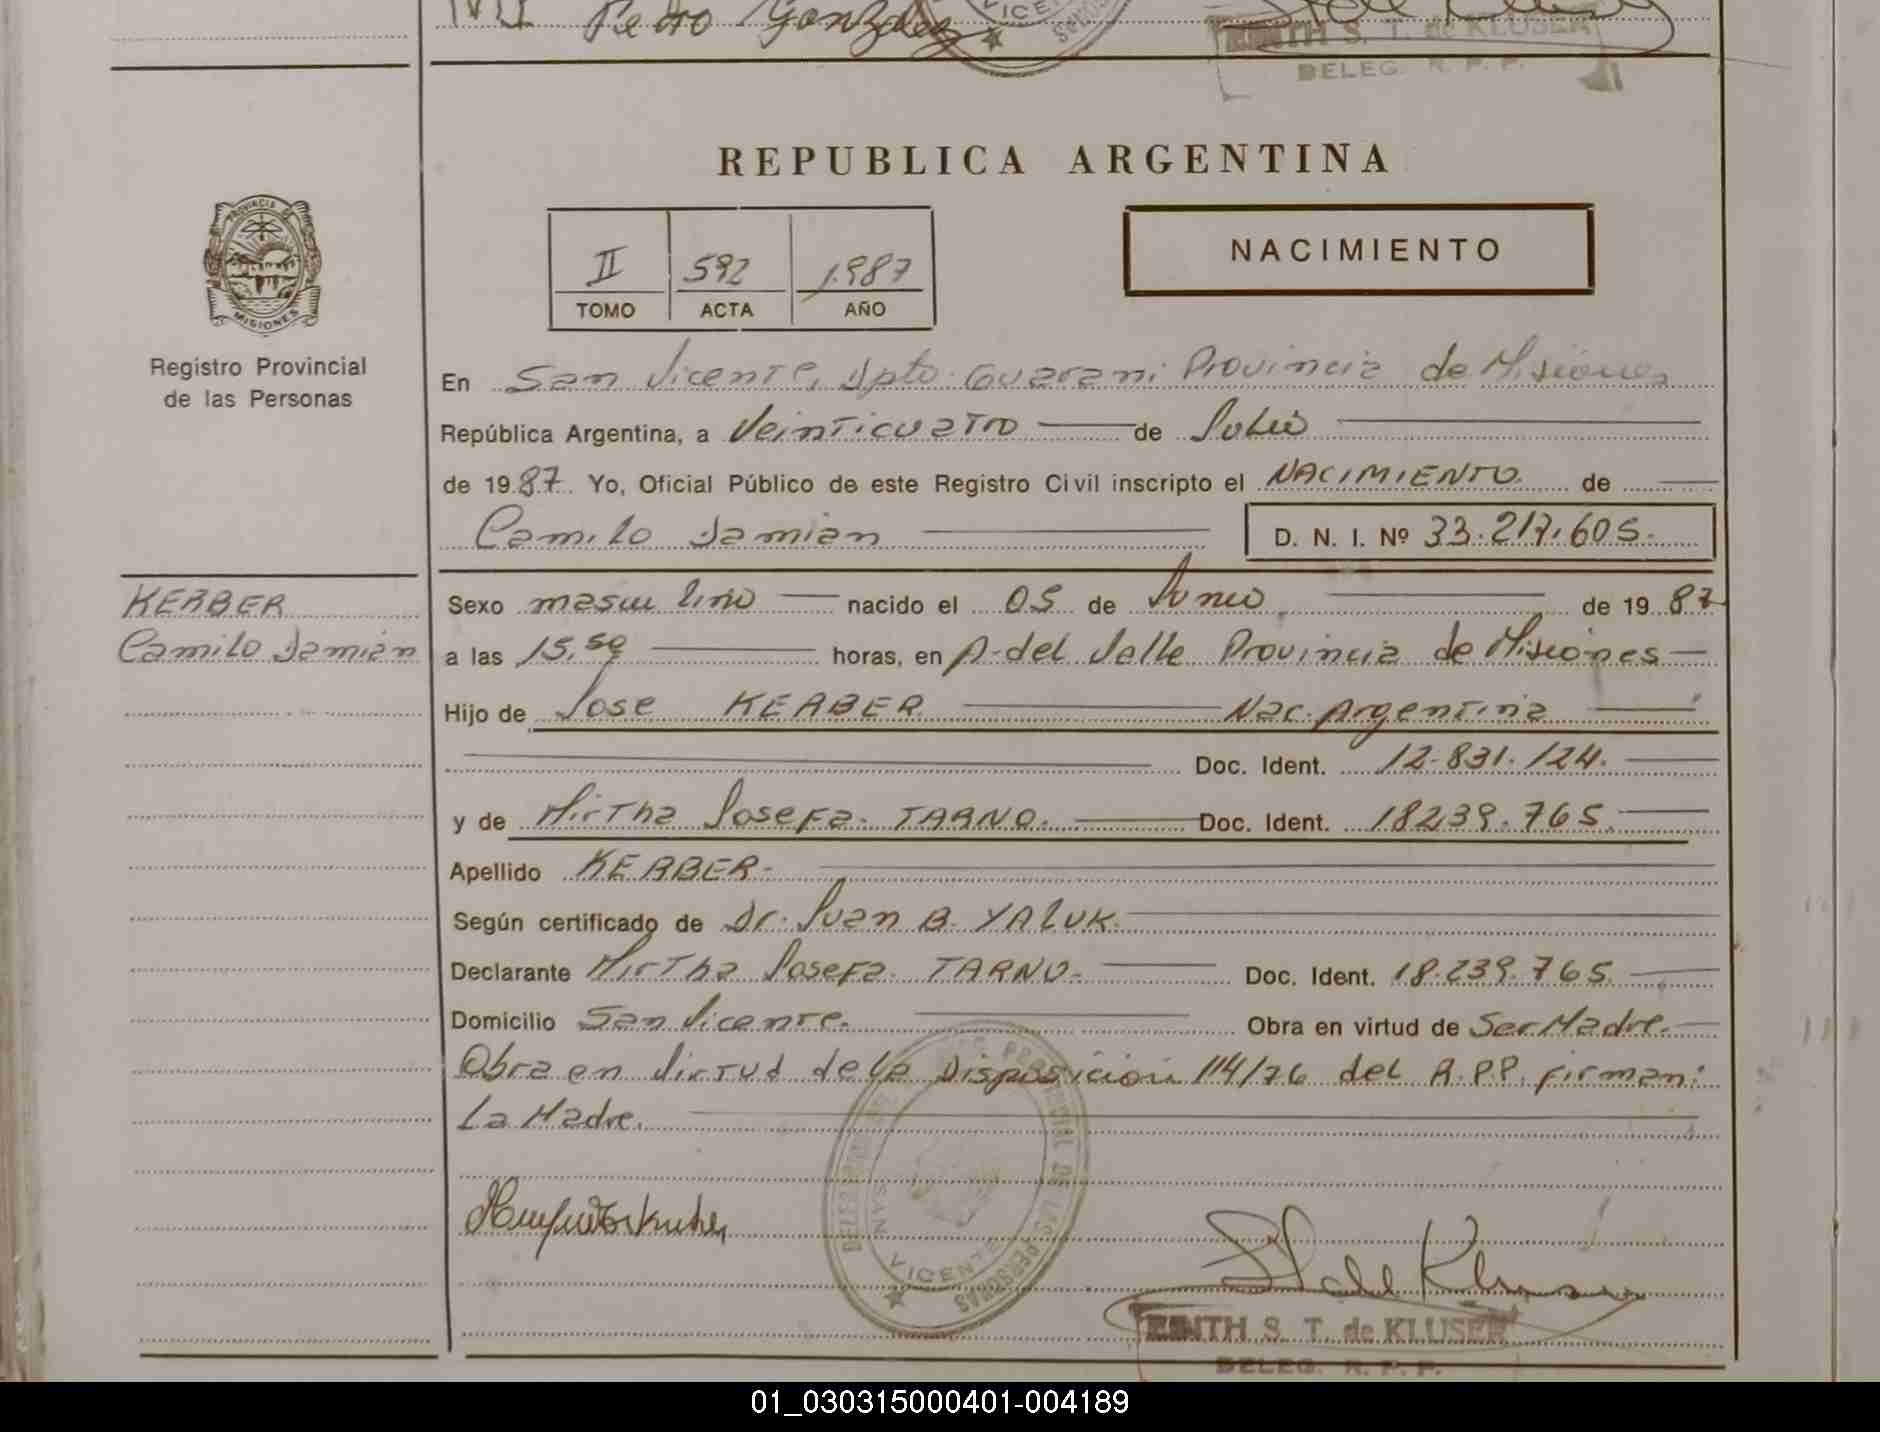 Pedro Gonzalez
VICENTE
EDITH S. T. de KLUSER
DELEG. R. P. P.
REPUBLICA ARGENTINA
PROVINCIA DE
MISIONES
Registro Provincial
de las Personas
II 592 1987
TOMO ACTA AÑO
NACIMIENTO
En San Vicente, Dpto. Guarani Provincia de Misiones
República Argentina, a Veinticuatro de Julio
de 1987. Yo, Oficial Público de este Registro Civil inscripto el NACIMIENTO de
Camilo Damian D. N. I. Nº 33.217.605.
KERBER
Camilo Damian
Sexo masculino nacido el 05 de Junio de 1987
a las 15,50 horas, en A. del Valle Provincia de Misiones
Hijo de Jose KERBER Nac. Argentina
Doc. Ident. 12.831.124.
y de Mirtha Josefa TARNO. Doc. Ident. 18239.765.
Apellido KERBER.
Según certificado de Dr. Juan B. YALUK.
Declarante Mirtha Josefa TARNO. Doc. Ident. 18.239.765.
Domicilio San Vicente. Obra en virtud de Ser Madre.
Obra en Virtud de la Disposicion 114/76 del R.P.P. firman:
La Madre.
DELEGACION SAN VICENTE
PROVINCIAL DE LAS PERSONAS
S T de Kluser
EDITH S. T. de KLUSER
DELEG. R. P. P.
01_030315000401-004189